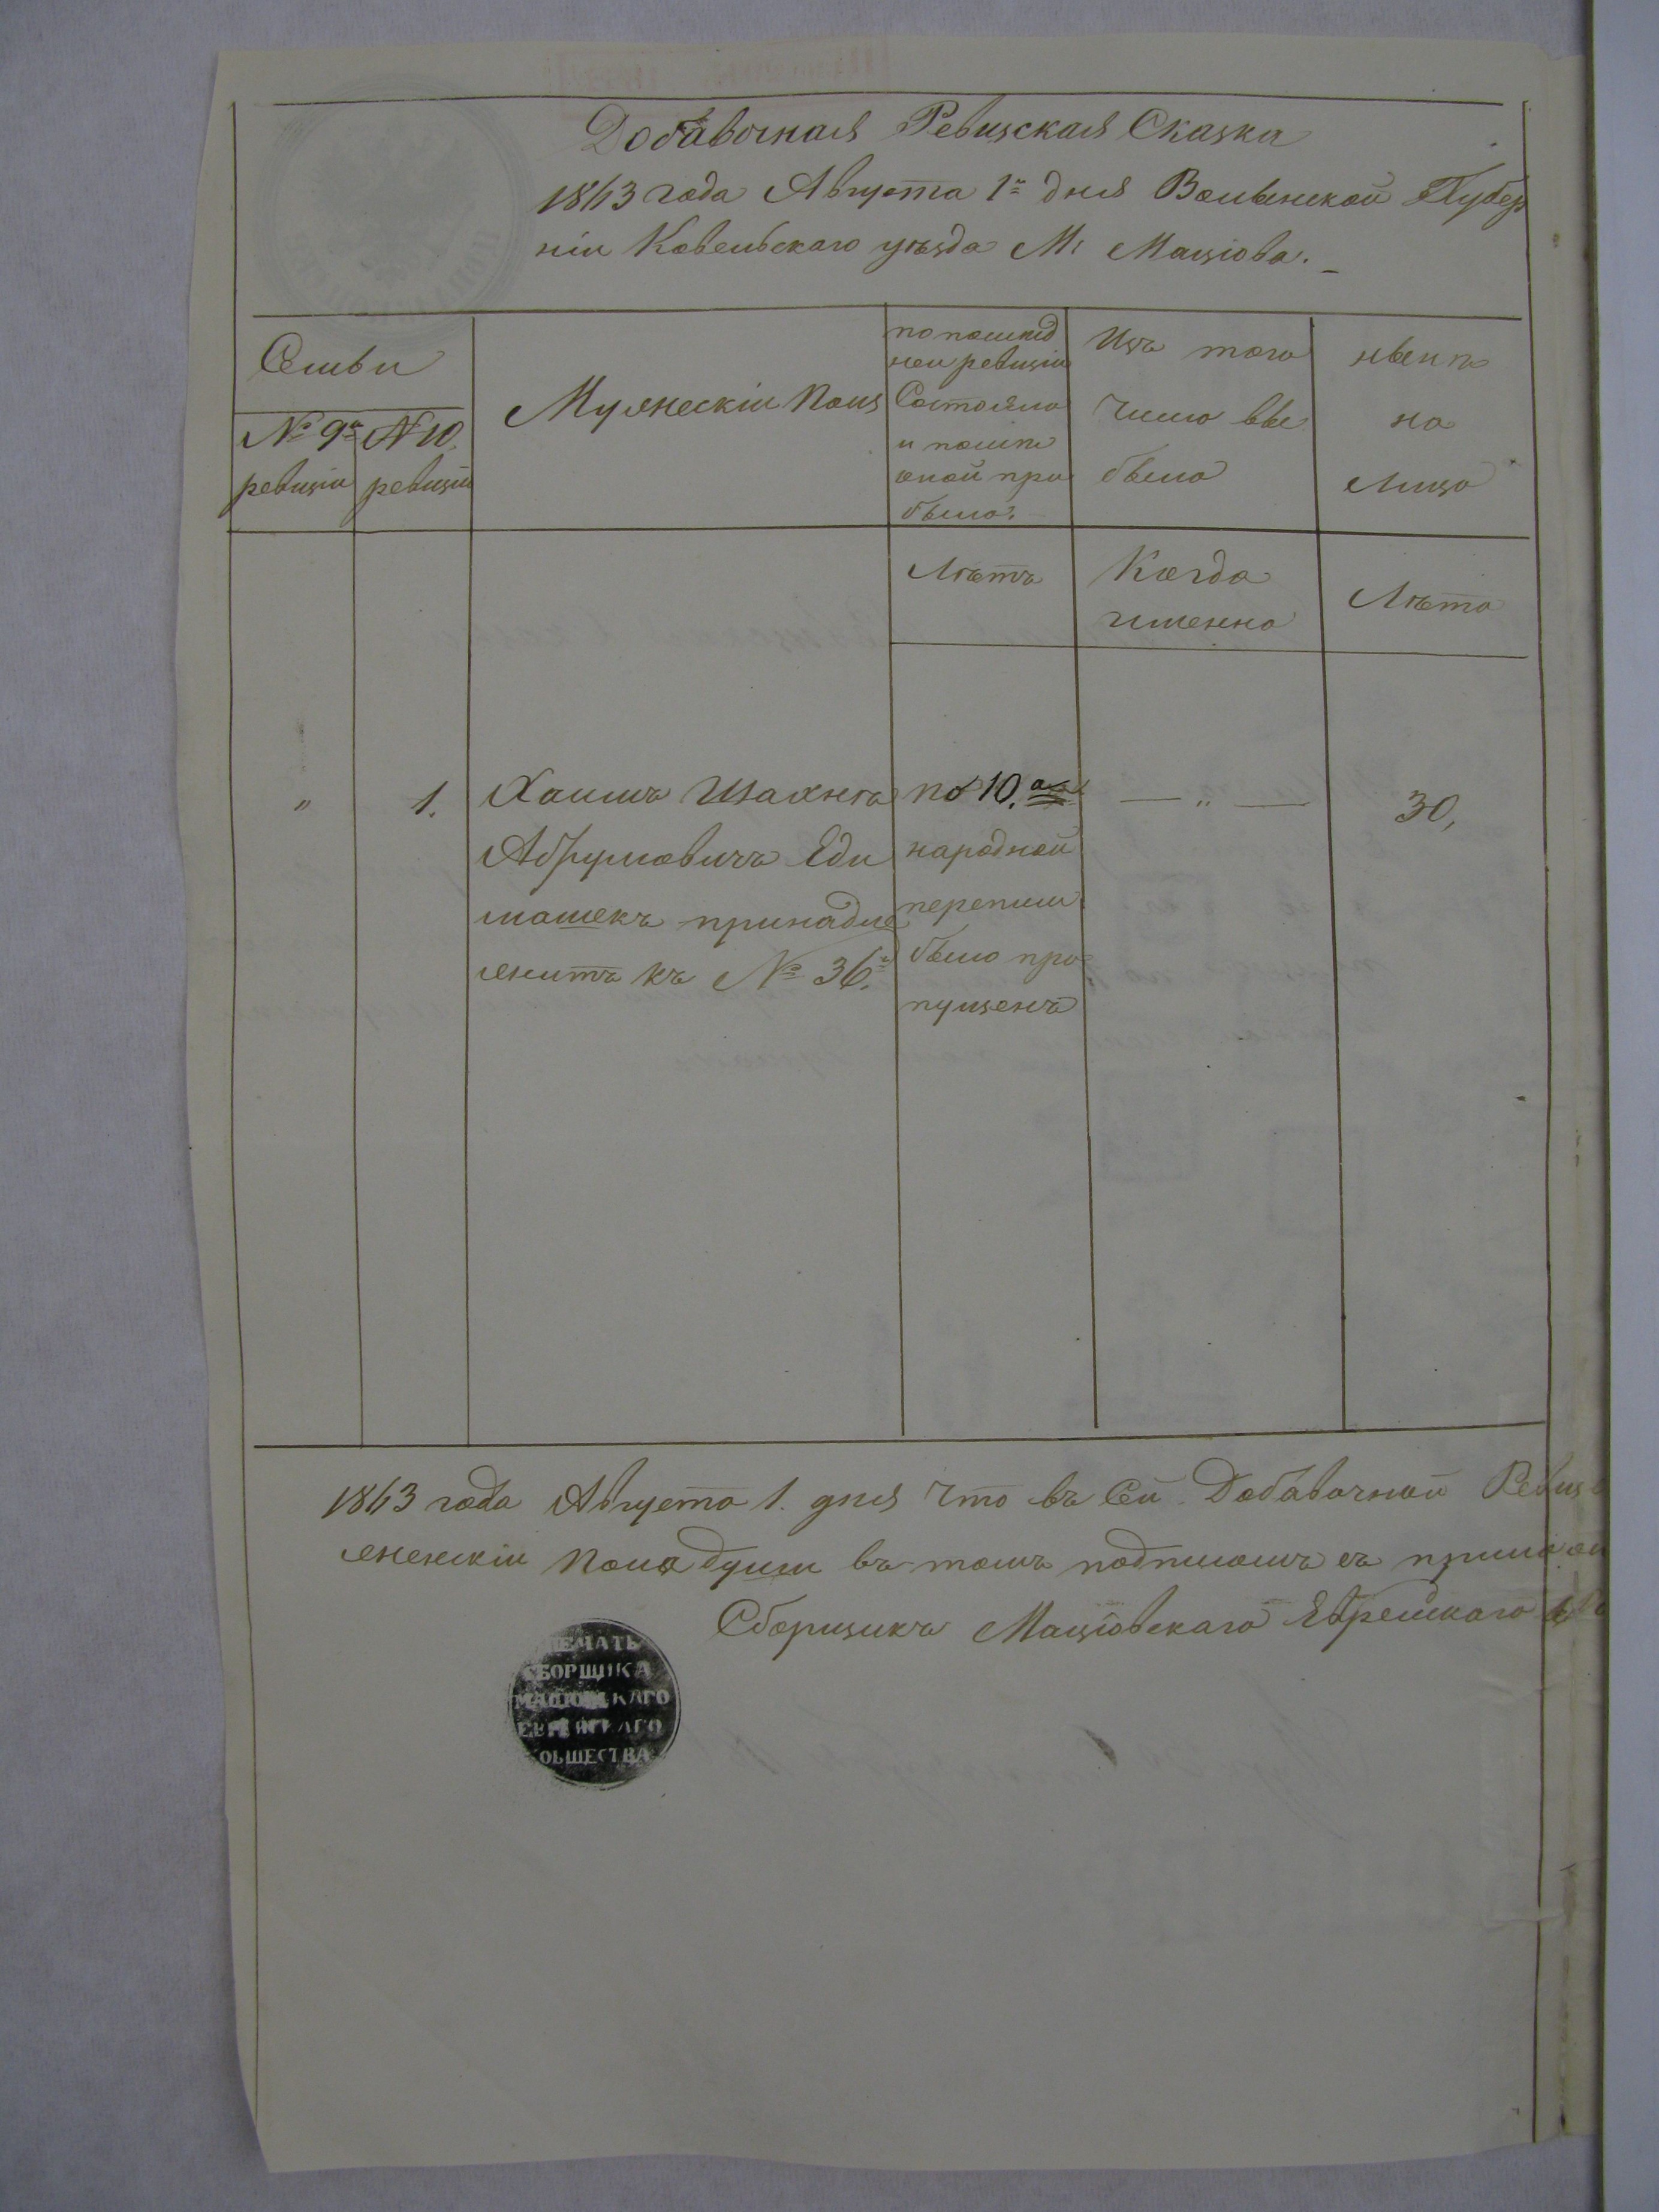 Добавочная Ревизская Сказка
1863 года Августа 1го дня Волынской Губер
ніи Ковельскаго уѣзда М. Маціова.
Семьи
№ 9й № 10
ревизіи ревизіи
Мужескій Полъ
по послѣд
ней ревизіи
Состояло
и после
оной при
было.
Изъ того
Число вы
было
нынѣ
на
Лицо
Лѣтъ
Когда
именно
Лѣта
" 1.
Хаимъ Шахна
Абрумовичъ Еди
машекъ принадле
житъ къ № 36.
по 10.ой
народной
переписи
было про
пущенъ
— " —
30,
1863 года Августа 1. дня Что въ Сей Добавочной Ревиз
женскій Пола души въ томъ подписомъ съ
Сборщикъ Маціовскаго Еврейскаго
ПЕЧАТЬ
СБОРЩИКА
МАЦІОВСКАГО
ЕВРЕЙСКАГО
ОБЩЕСТВА